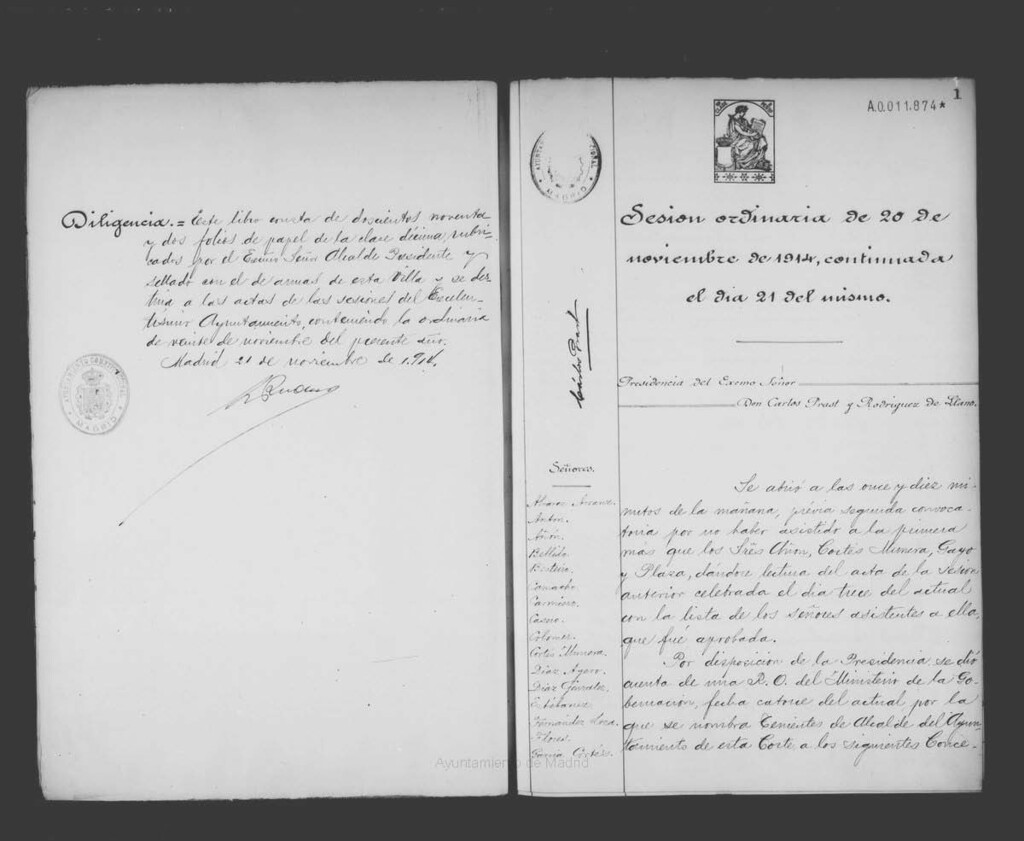 Diligencia.= Este libro consta de doscientos noventa
y dos folios de papel de la clase décima, rubri-
cados por el Excmo Señor Alcalde Presidente y
sellado con el de armas de esta Villa y se des-
tina a las actas de las sesiones del Excelen-
tísimo Ayuntamiento, conteniendo la ordinaria
de veinte de noviembre del presente año.
Madrid 21 de noviembre de 1.914.
MADRID
1
A.0.011.874*
MADRID
Sesion ordinaria de 20 de
noviembre de 1914, continuada
el dia 21 del mismo.
Carlos Prast
Presidencia del Excmo Señor
Don Carlos Prast y Rodriguez de Llano.
Señores.
Alvarez Arranz.
Antón.
Añón.
Bellido.
Besteiro.
Camacho.
Carnicero.
Casero.
Colomer.
Cortés Munera.
Díaz Agero.
Díaz González.
Estébanez.
Fernández Loza.
Flores.
García Cortés.
Se abrió a las once y diez mi-
nutos de la mañana, previa segunda convoca-
toria por no haber asistido a la primera
más que los Sres Añon, Cortés Munera, Gayo
y Plaza, dándose lectura del acta de la sesion
anterior celebrada el dia trece del actual
con la lista de los señores asistentes a ella,
que fué aprobada.
Por disposición de la Presidencia se dió
cuenta de una R. O. del Ministerio de la Go-
bernación, fecha catorce del actual por la
que se nombra Tenientes de Alcalde del Ayun-
tamiento de esta Corte, a los siguientes Conce-
Ayuntamiento de Madrid